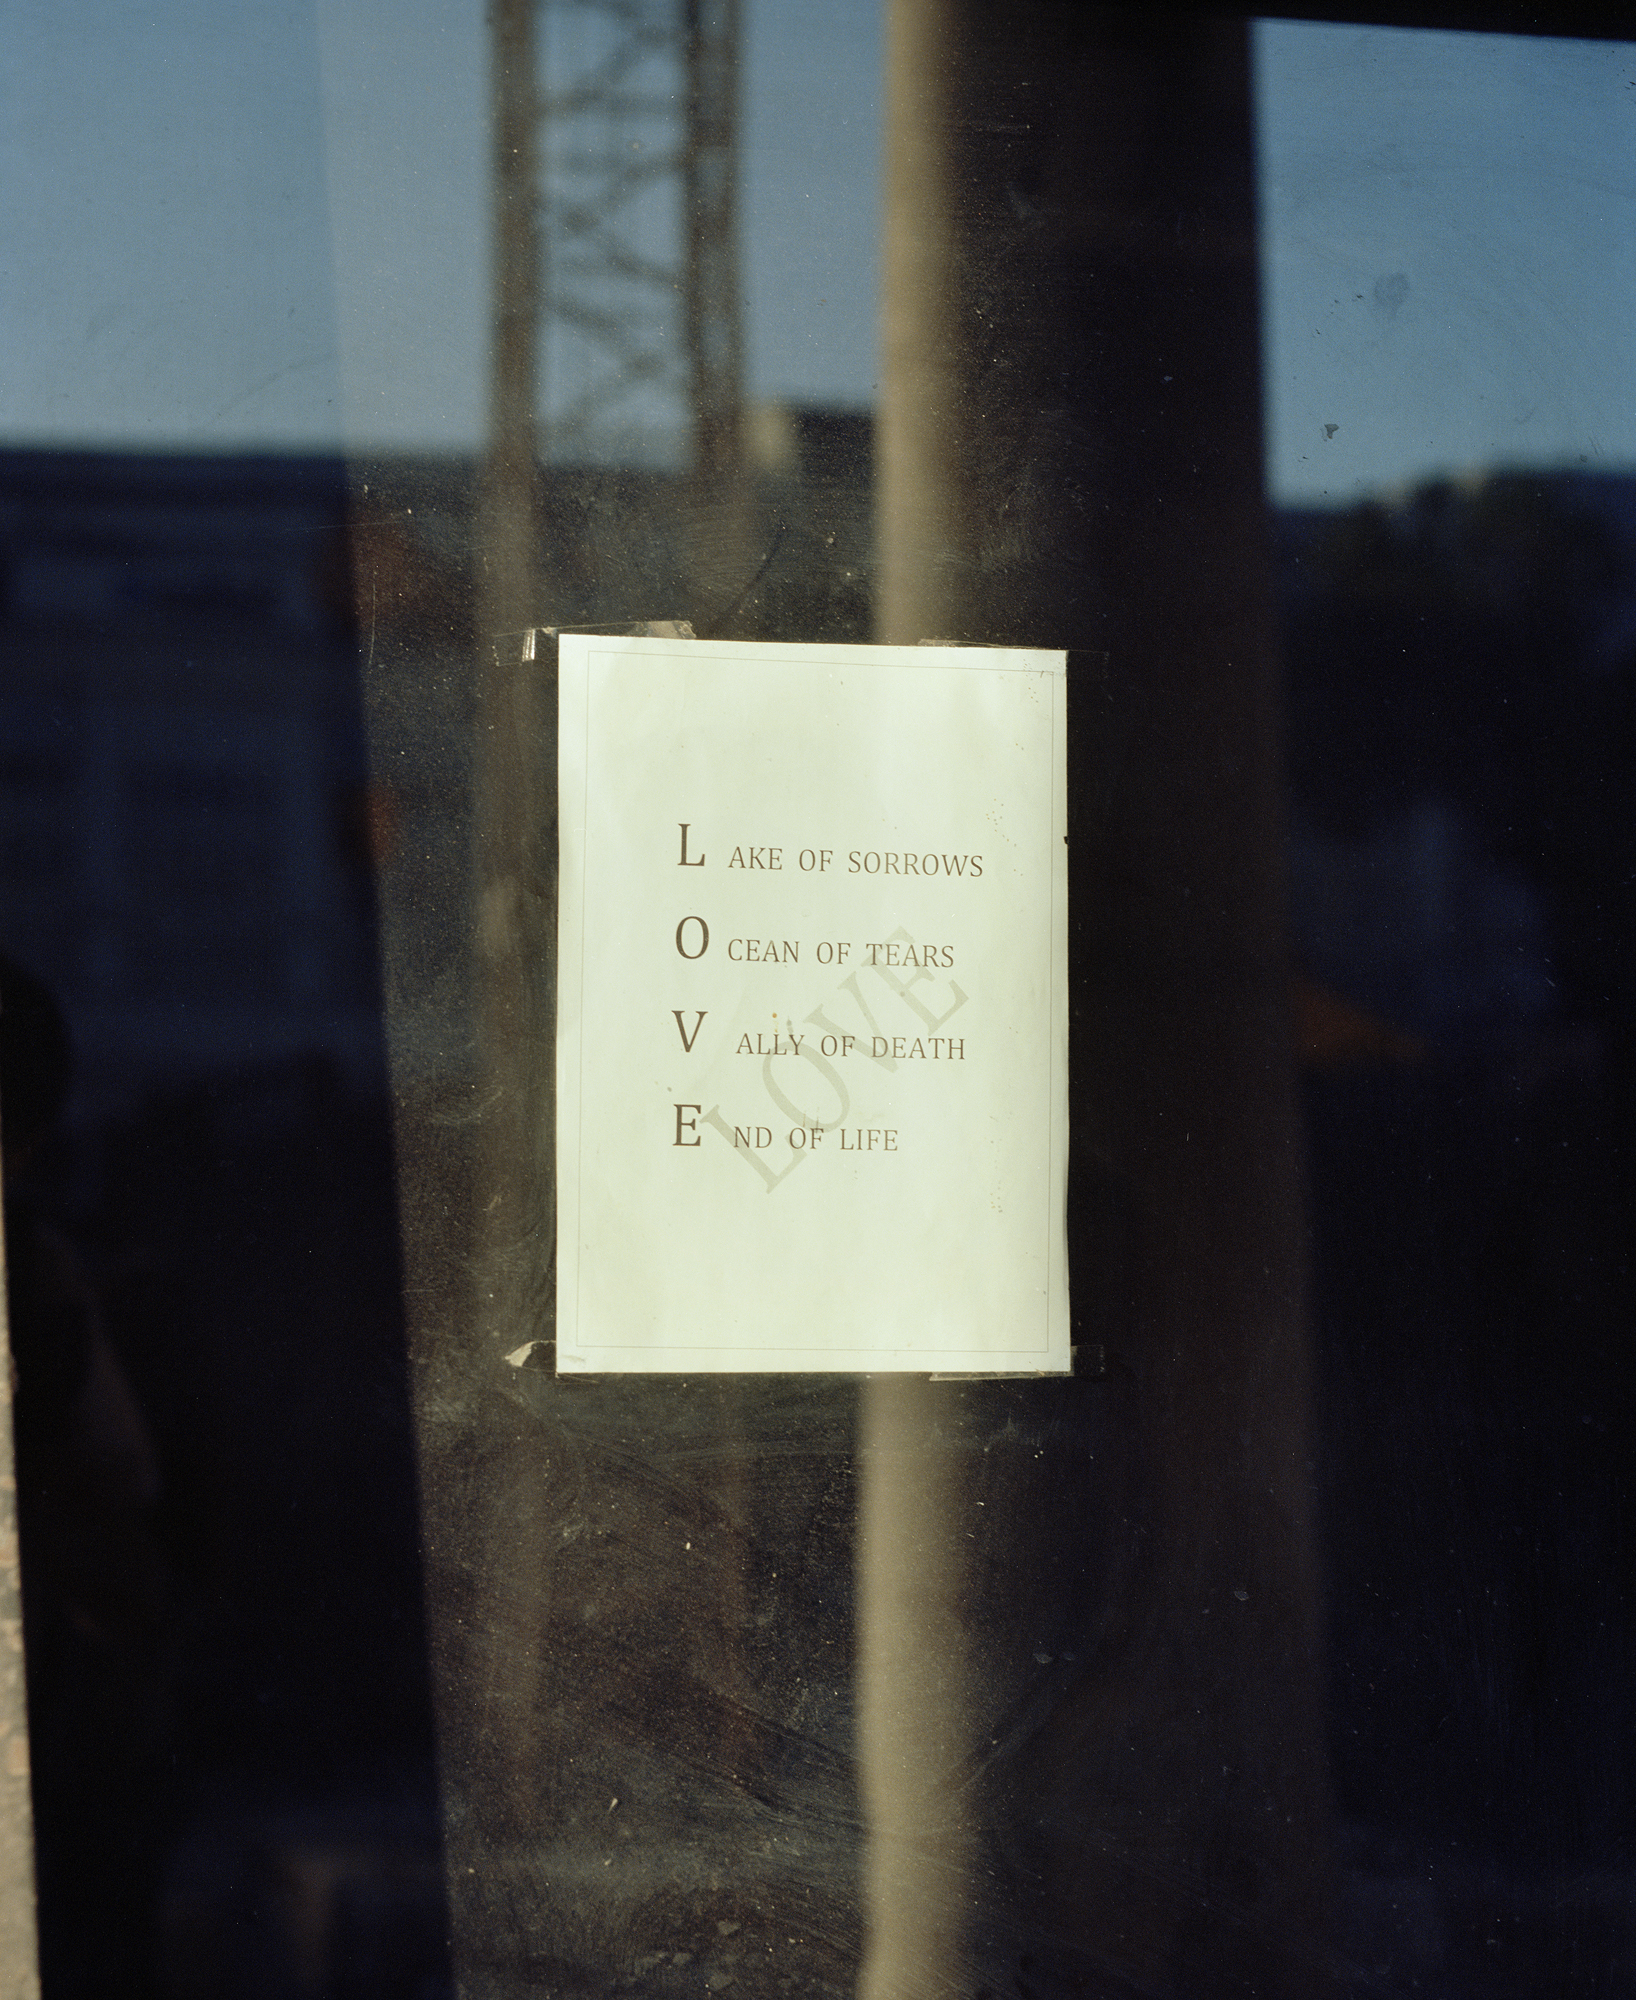 LAKE OF SORROWS
OCEAN OF TEARS
VALLY OF DEATH
END OF LIFE
LOVE